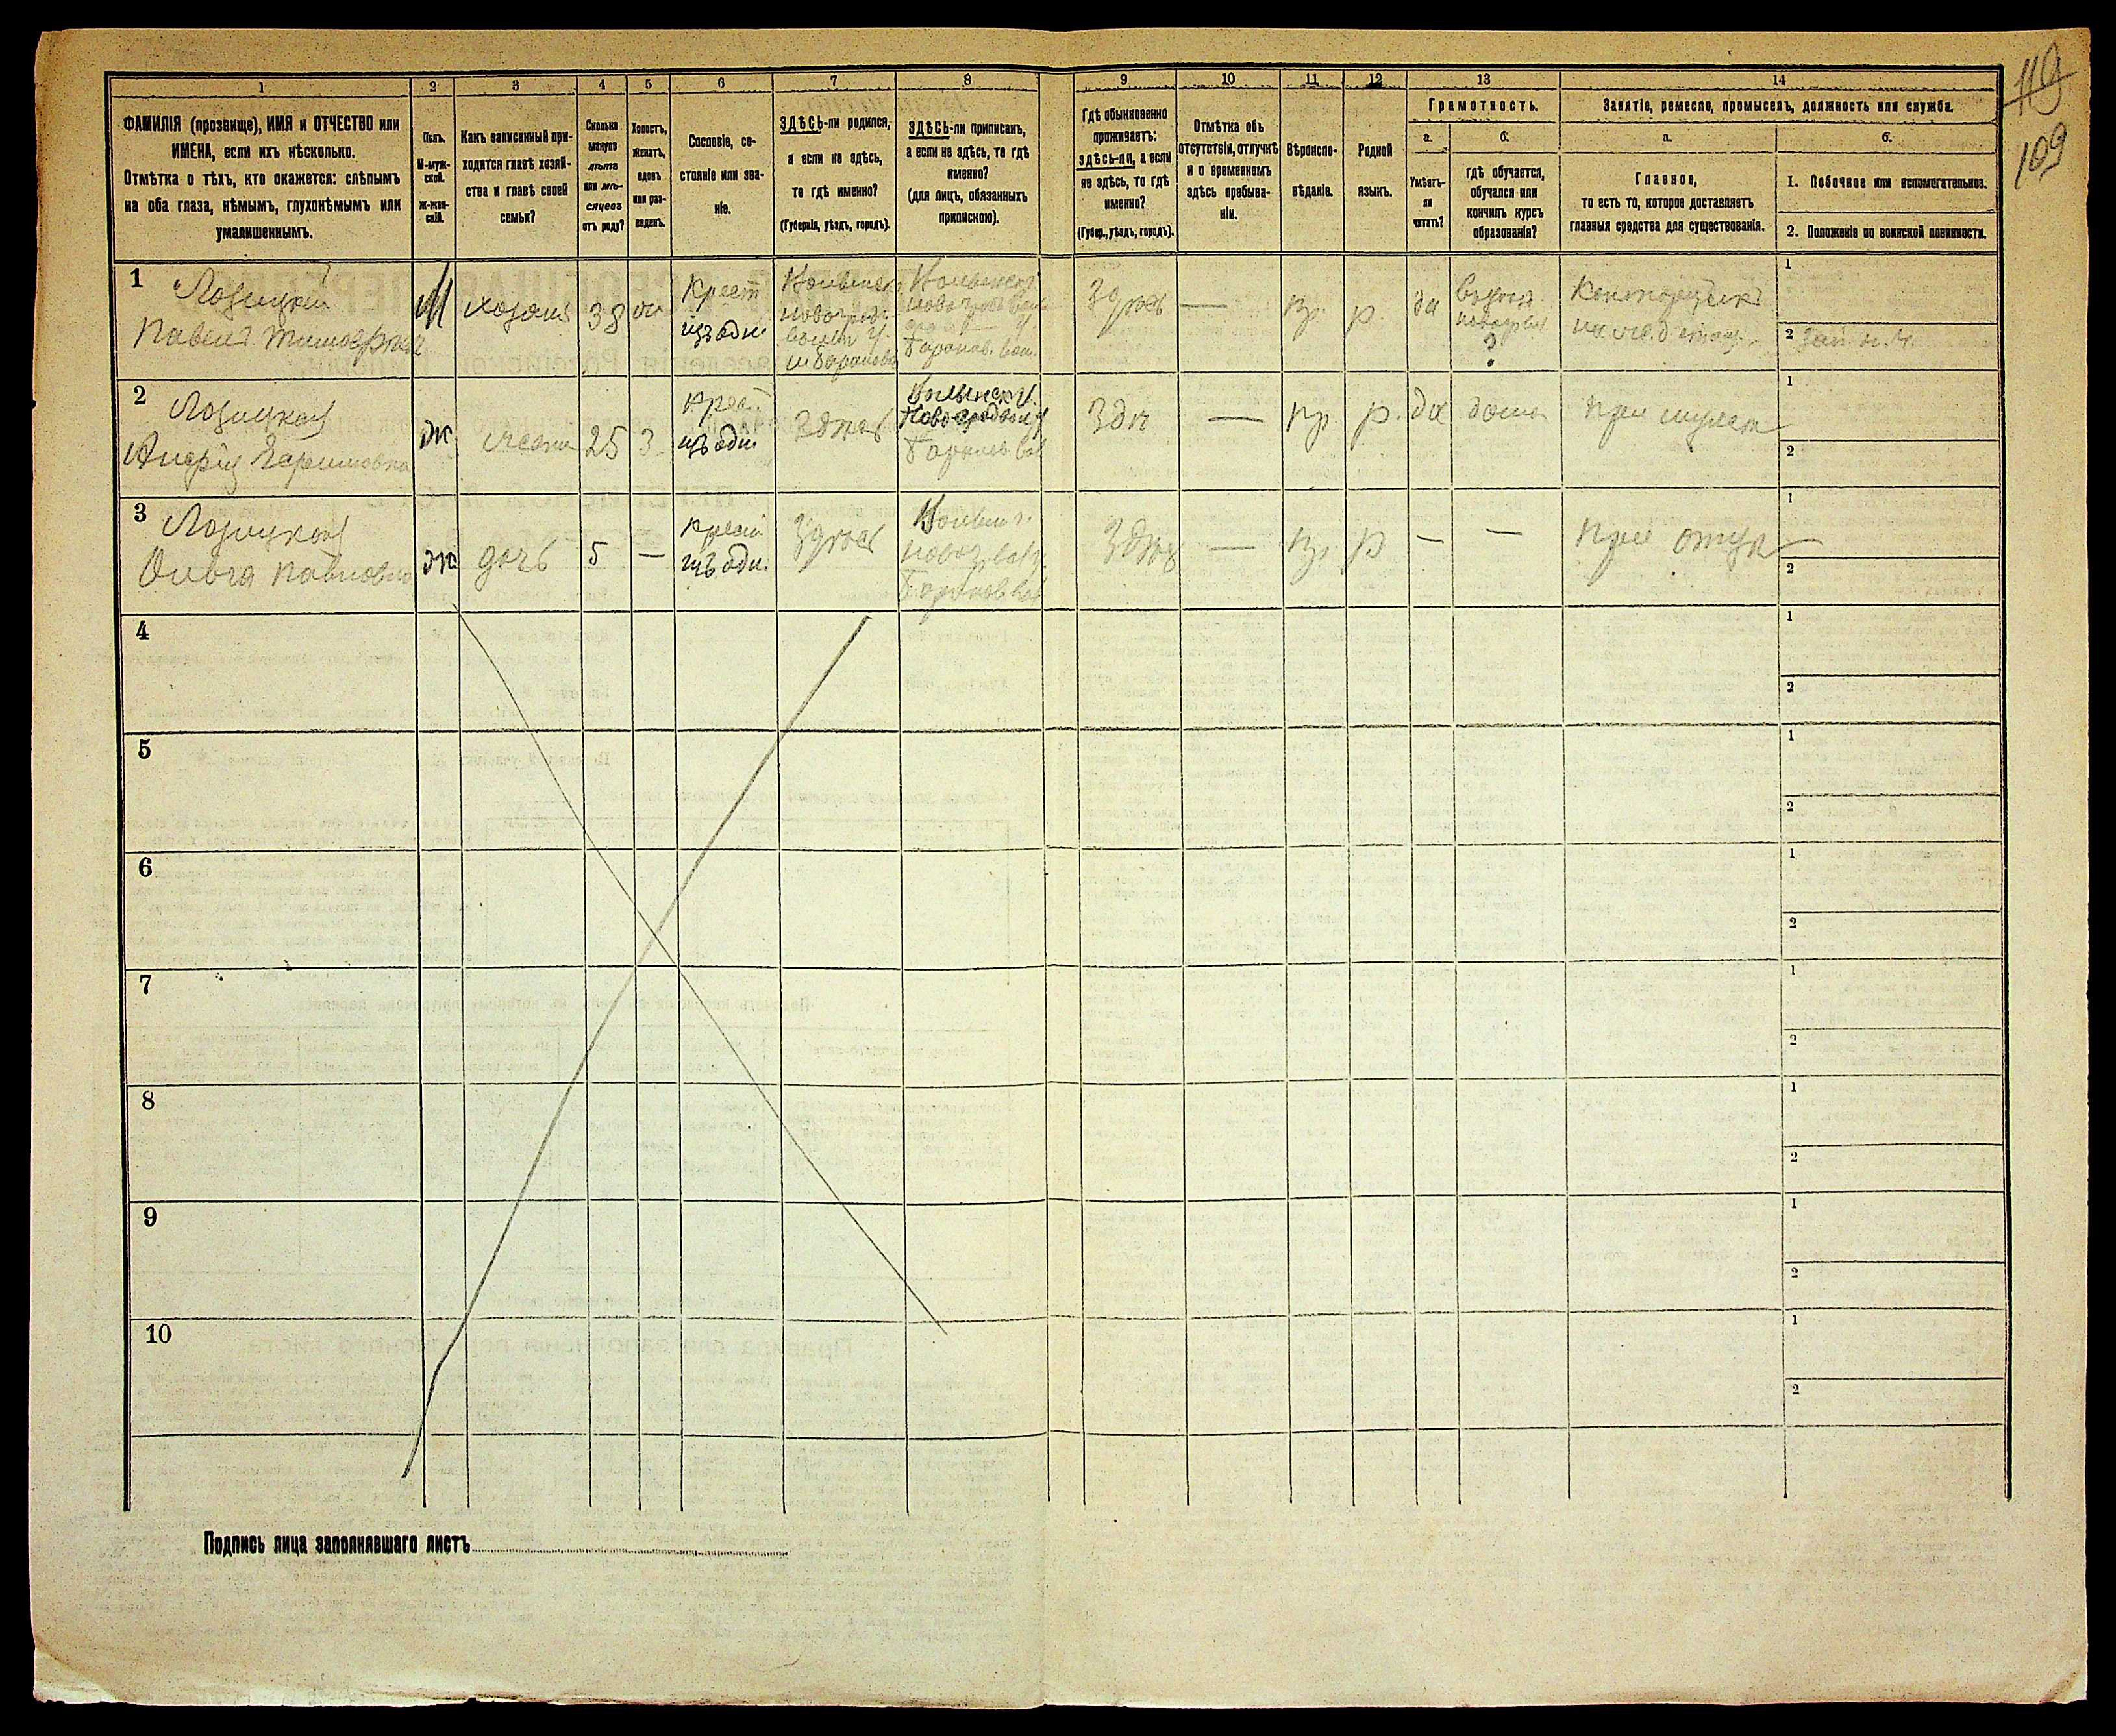 119
109
1
2
3
4
5
6
7
8
9
10
11
12
13
14
ФАМИЛІЯ (прозвище), ИМЯ и ОТЧЕСТВО или
ИМЕНА, если ихъ нѣсколько.
Отмѣтка о тѣхъ, кто окажется: слѣпымъ
на оба глаза, нѣмымъ, глухонѣмымъ или
умалишеннымъ.
Полъ.
М-муж-
ской.
Ж-жен-
скій.
Какъ записанный при-
ходится главѣ хозяй-
ства и главѣ своей
семьи?
Сколько
минуло
лѣтъ
или мѣ-
сяцевъ
отъ роду?
Холостъ,
женатъ,
вдовъ
или раз-
веденъ.
Сословіе, со-
стояніе или зва-
ніе.
ЗДѢСЬ-ли родился,
а если не здѣсь,
то гдѣ именно?
(Губернія, уѣздъ, городъ).
ЗДѢСЬ-ли приписанъ,
а если не здѣсь, то гдѣ
именно?
(для лицъ, обязанныхъ
припискою).
Гдѣ обыкновенно
проживаетъ:
здѣсь-ли, а если
не здѣсь, то гдѣ
именно?
(Губер., уѣздъ, городъ).
Отмѣтка объ
отсутствіи, отлучкѣ
и о временномъ
здѣсь пребыва-
ніи.
Вѣроиспо-
вѣданіе.
Родной
языкъ.
Грамотность.
а.
б.
Умѣетъ-
ли
читать?
гдѣ обучается,
обучался или
кончилъ курсъ
образованія?
Занятіе, ремесло, промыселъ, должность или служба.
а.
б.
Главное,
то есть то, которое доставляетъ
главныя средства для существованія.
1. Побочное или вспомогательное.
2. Положеніе по воинской повинности.
1
Лозицкій
Павелъ
М
хозяинъ
38
Крест
изъ оди.
Волынск
Волынск.
Здѣсь
—
пр.
р.
да
Конторщикъ
1
2
2
Лозицкая
ж
жена
25
3
крест
изъ оди.
Здѣсь
Волынск. г.
Новоградвол. у
—
пр.
р.
да
дома
при мужѣ
1
2
3
Лозицкая
Ольга Павловна
ж
дочь
5
—
крест
изъ оди.
Здѣсь
Здѣсь
—
пр.
р
—
—
при отцѣ
1
2
4
1
2
5
1
2
6
1
2
7
1
2
8
1
2
9
1
2
10
1
2
Подпись лица заполнявшаго листъ